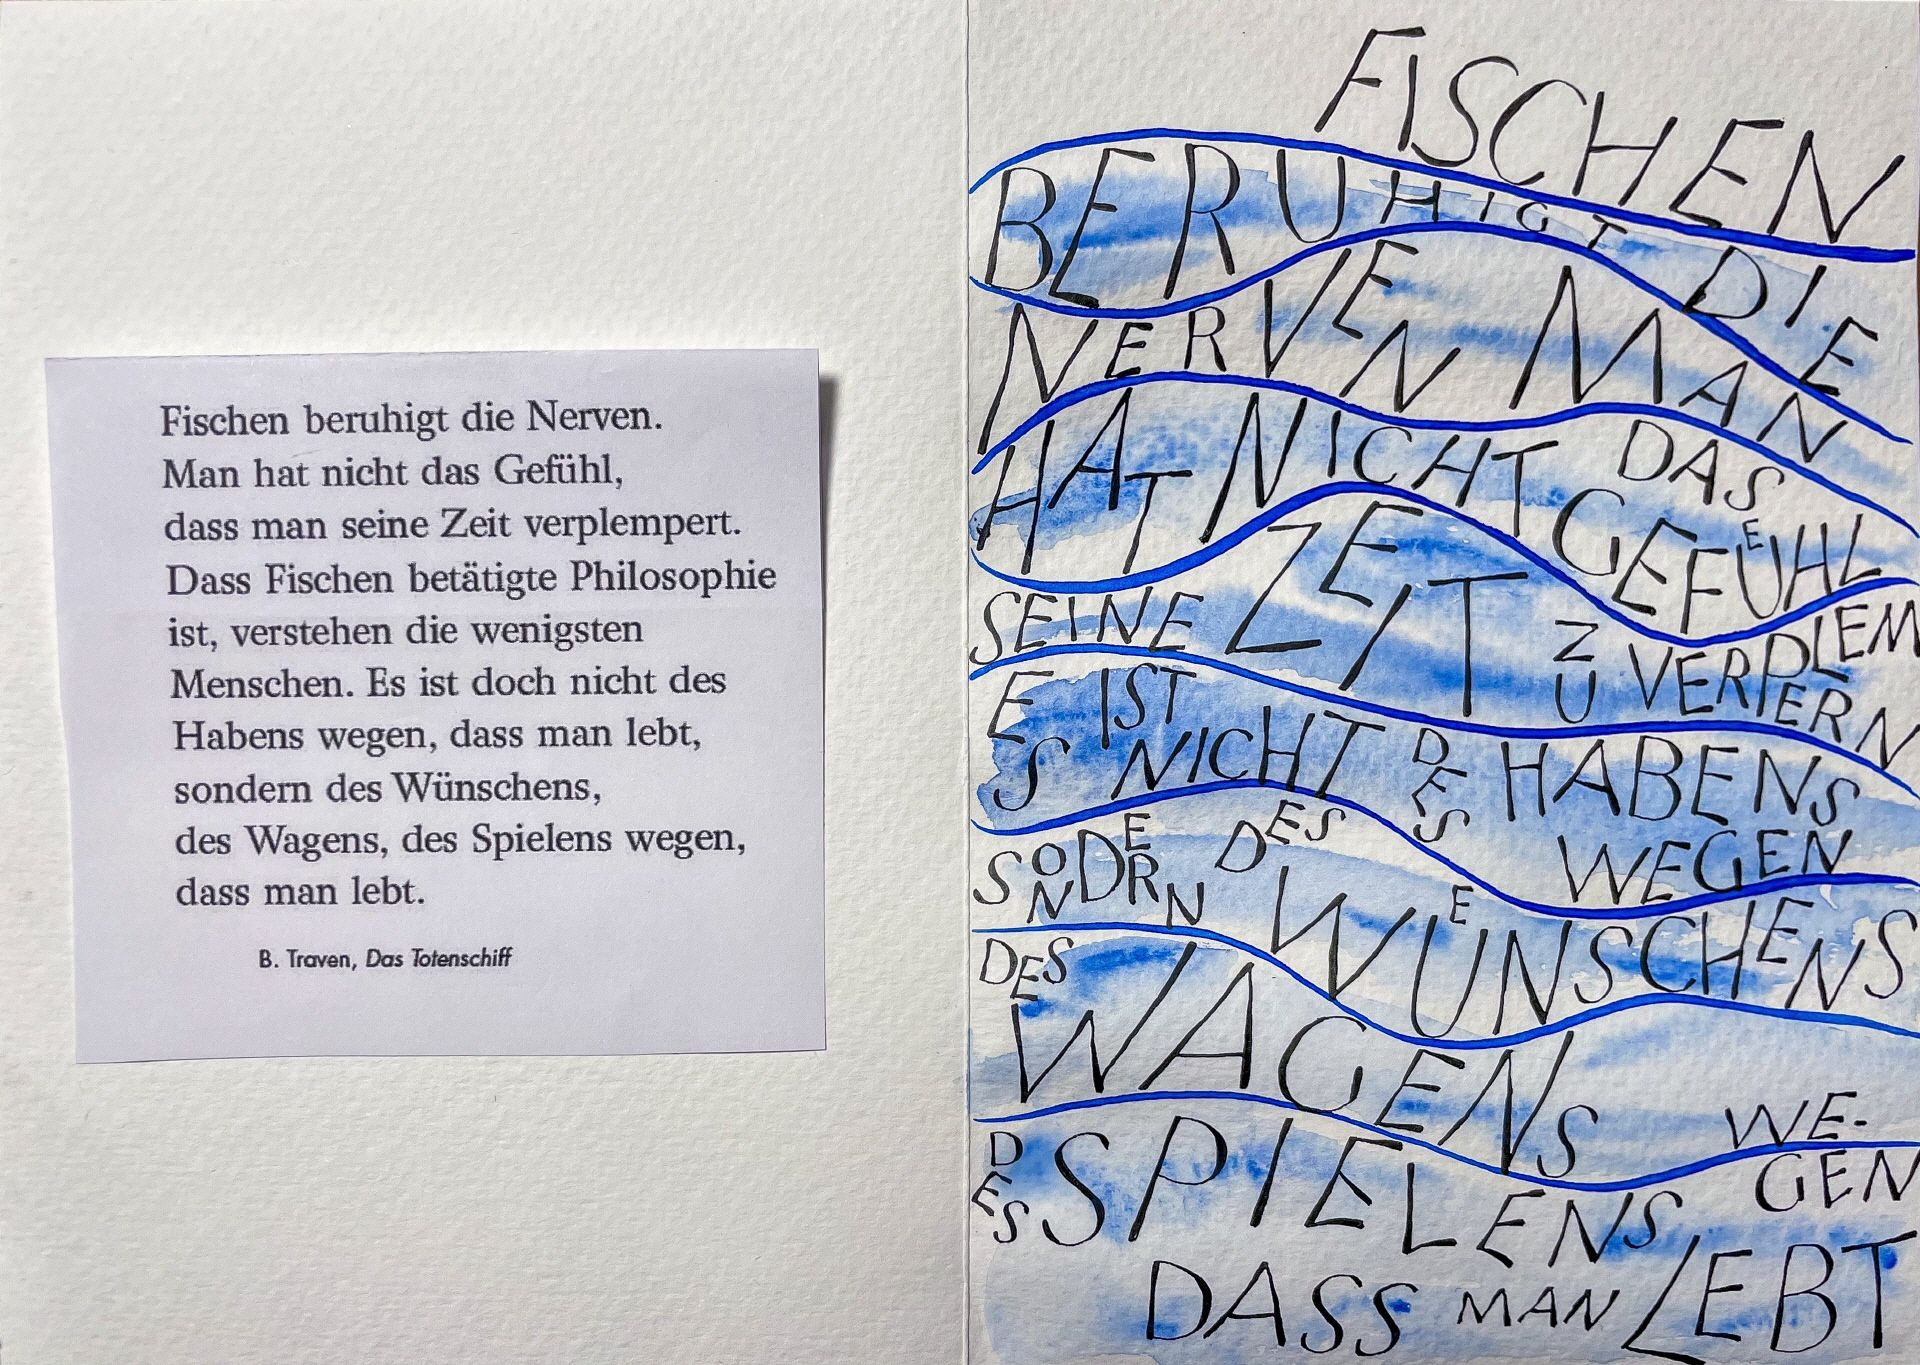 Fischen beruhigt die Nerven.
Man hat nicht das Gefühl,
dass man seine Zeit verplempert.
Dass Fischen betätigte Philosophie
ist, verstehen die wenigsten
Menschen. Es ist doch nicht des
Habens wegen, dass man lebt,
sondern des Wünschens,
des Wagens, des Spielens wegen,
dass man lebt.
B. Traven, Das Totenschiff
FISCHEN
BERUHIGT DIE
NERVEN MAN
HAT NICHT DAS GEFUEHL
SEINE ZEIT ZU VERPLEMPERN
ES IST NICHT DES HABENS WEGEN
SONDERN DES WUENSCHENS
DES WAGENS WE-
DES SPIELENS GEN
DASS MAN LEBT